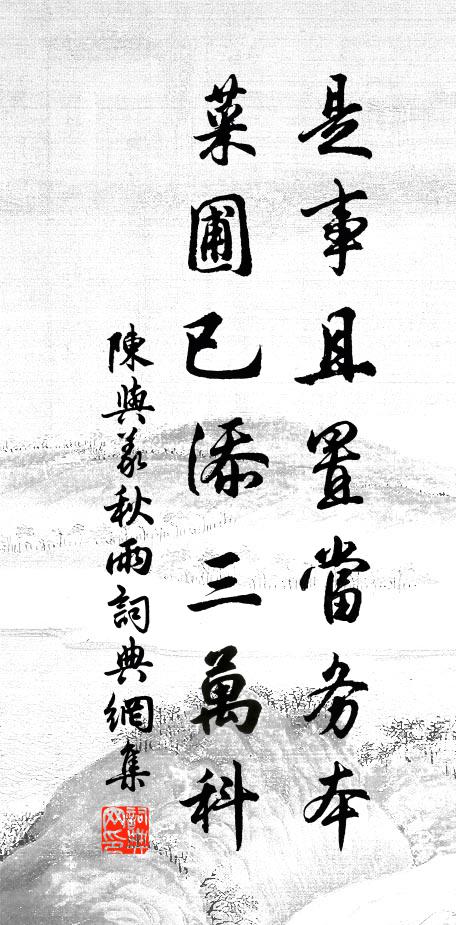 是事且置當务本
菜圃已添三萬科
陳與義秋雨詞典網集